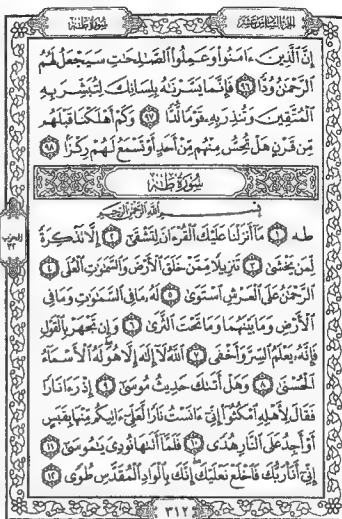 الجزء السادس عشر
سورة طه
إِنَّ ٱلَّذِينَ ءَامَنُوا۟ وَعَمِلُوا۟ ٱلصَّٰلِحَٰتِ سَيَجْعَلُ لَهُمُ
ٱلرَّحْمَٰنُ وُدًّا ٩٦ فَإِنَّمَا يَسَّرْنَٰهُ بِلِسَانِكَ لِتُبَشِّرَ بِهِ
ٱلْمُتَّقِينَ وَتُنذِرَ بِهِۦ قَوْمًا لُّدًّا ٩٧ وَكَمْ أَهْلَكْنَا قَبْلَهُم
مِّن قَرْنٍ هَلْ تُحِسُّ مِنْهُم مِّنْ أَحَدٍ أَوْ تَسْمَعُ لَهُمْ رِكْزًۢا ٩٨
سُورَةُ طه
بِسْمِ ٱللَّهِ ٱلرَّحْمَٰنِ ٱلرَّحِيمِ
طه ١ مَآ أَنزَلْنَا عَلَيْكَ ٱلْقُرْءَانَ لِتَشْقَىٰٓ ٢ إِلَّا تَذْكِرَةً
لِّمَن يَخْشَىٰ ٣ تَنزِيلًا مِّمَّنْ خَلَقَ ٱلْأَرْضَ وَٱلسَّمَٰوَٰتِ ٱلْعُلَى ٤
ٱلرَّحْمَٰنُ عَلَى ٱلْعَرْشِ ٱسْتَوَىٰ ٥ لَهُۥ مَا فِى ٱلسَّمَٰوَٰتِ وَمَا فِى
ٱلْأَرْضِ وَمَا بَيْنَهُمَا وَمَا تَحْتَ ٱلثَّرَىٰ ٦ وَإِن تَجْهَرْ بِٱلْقَوْلِ
فَإِنَّهُۥ يَعْلَمُ ٱلسِّرَّ وَأَخْفَى ٧ ٱللَّهُ لَآ إِلَٰهَ إِلَّا هُوَ لَهُ ٱلْأَسْمَآءُ
ٱلْحُسْنَىٰ ٨ وَهَلْ أَتَىٰكَ حَدِيثُ مُوسَىٰٓ ٩ إِذْ رَءَا نَارًا
فَقَالَ لِأَهْلِهِ ٱمْكُثُوٓا۟ إِنِّىٓ ءَانَسْتُ نَارًا لَّعَلِّىٓ ءَاتِيكُم مِّنْهَا بِقَبَسٍ
أَوْ أَجِدُ عَلَى ٱلنَّارِ هُدًى ١٠ فَلَمَّآ أَتَىٰهَا نُودِىَ يَٰمُوسَىٰٓ ١١
إِنِّىٓ أَنَا۠ رَبُّكَ فَٱخْلَعْ نَعْلَيْكَ إِنَّكَ بِٱلْوَادِ ٱلْمُقَدَّسِ طُوًى ١٢
٣١٢